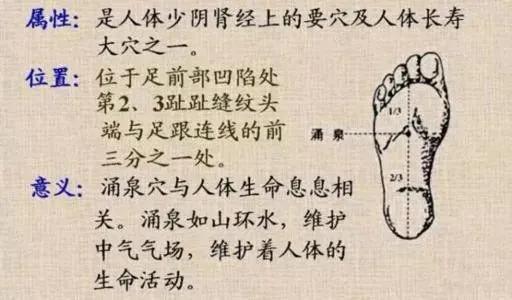 属性：是人体少阴肾经上的要穴及人体长寿
大穴之一。
位置：位于足前部凹陷处
第2、3趾趾缝纹头
端与足跟连线的前
三分之一处。
涌泉
1/3
2/3
意义：涌泉穴与人体生命息息相
关。涌泉如山环水，维护
中气气场，维护着人体的
生命活动。